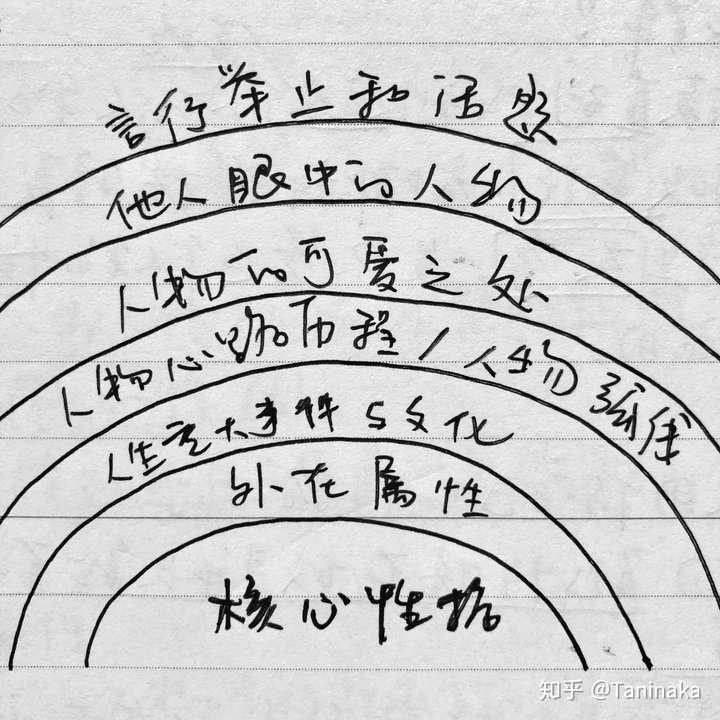 言行举止和话题
他人眼中的人物
人物的可爱之处
人物心路历程/人物弧线
人生重大事件与文化
外在属性
核心性格
知乎 @Taninaka